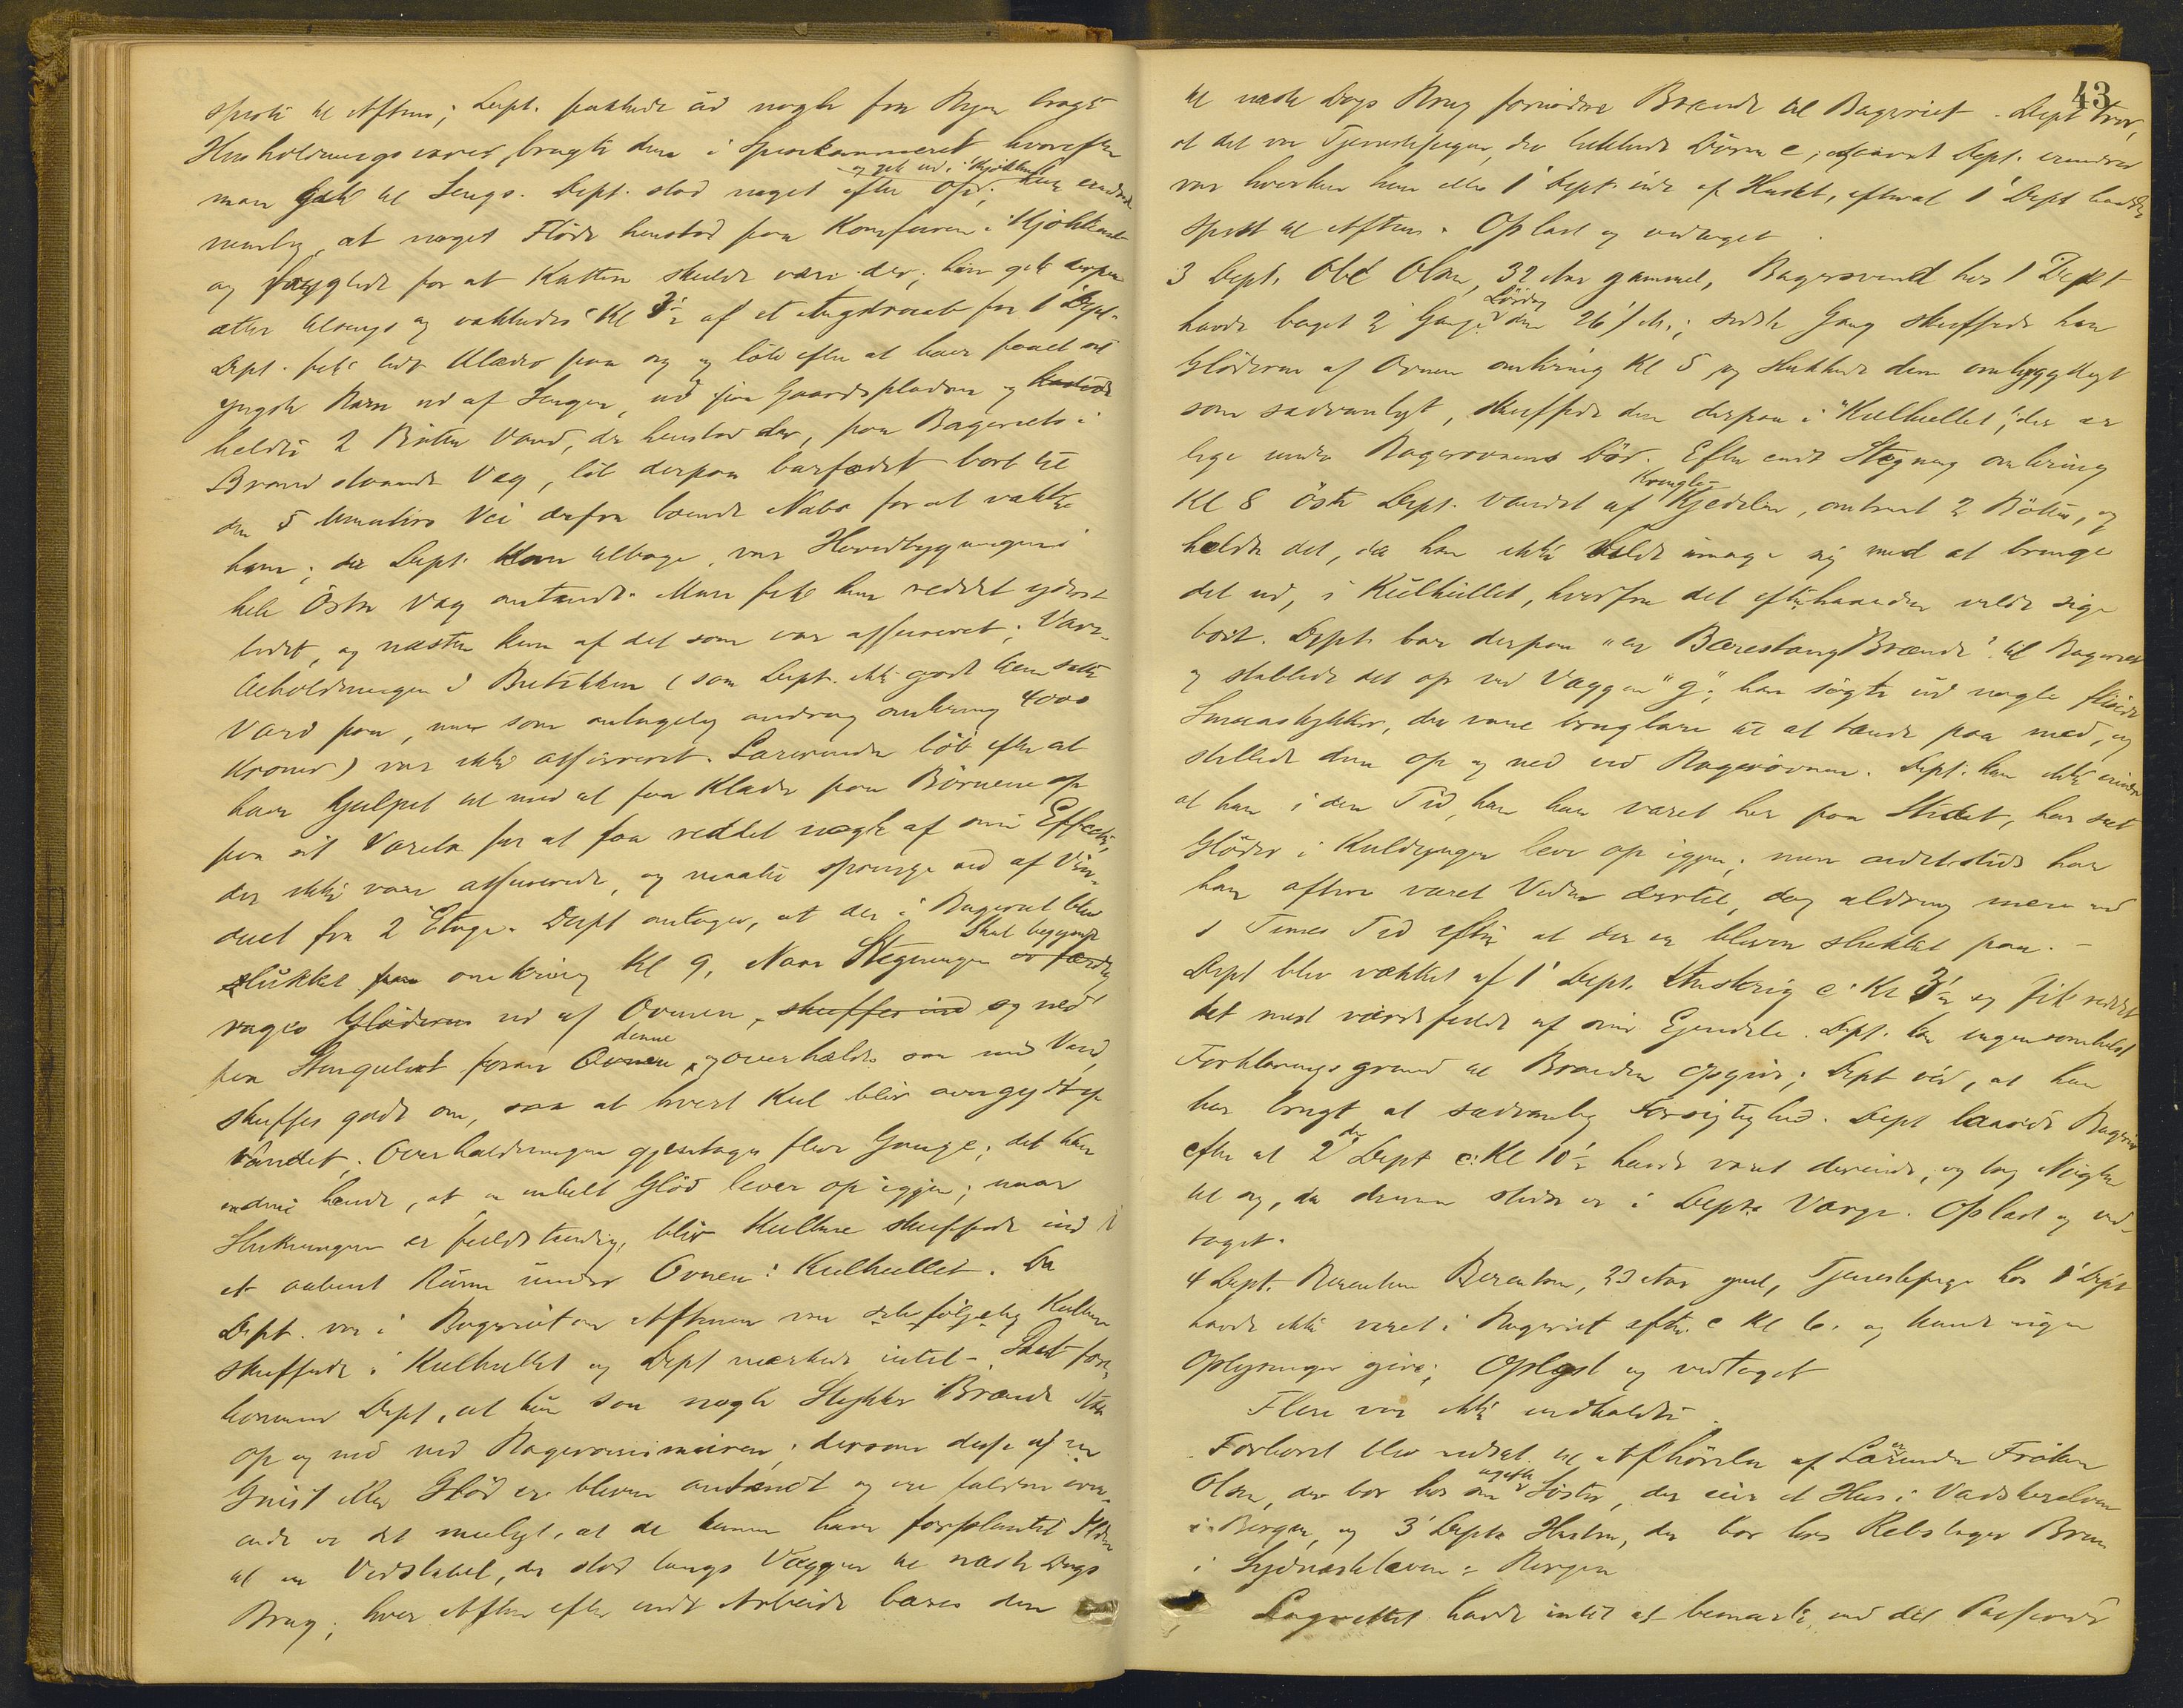 spiste til Aftens; Dept. pakkede ud nogle fra Byen bragte
Husholdningsvarer, bragte dem i Spiskammeret hvorefter
man gik til Sengs. Dept. stod noget efter op; og gik ud i Kjøkkenet hun erindrede
nemlig, at noget Fløde henstod paa Komfuren i Kjøkkenet
og frygtede for at Katten skulde være der; hun gik derpaa
atter tilsengs og vækkedes Kl 3½ af et Angstraab fra 1 Dept.
Dept. fik lidt Klæder paa sig og løb efter at have faaet sit
yngste Barn ud af Sengen, ud paa Gaardspladsen og
heldte 2 Bøtter Vand, der henstod der, paa Bageriets i
Brand staaende Væg, løb derpaa barfodet bort til
den 5 Minutters Vei derfra boende Nabo for at vække
ham; da Dept. kom tilbage, var Hovedbygningens
hele Østre Væg antændt. Man fik kun reddet yderst
lidet, og næsten kun af det som var assureret; Vare-
beholdningen i Butikken (som Dept. ikke godt kan sætte
Værd paa, men som antagelig androg omkring 4000
Kroner) var ikke assureret. Lærerinden løb efter at
have hjulpet til med at faa Klæder paa Børnene op
paa sit Værelse for at faa reddet nogle af sine Effecter,
der ikke vare assurerede, og maatte springe ud af Vin-
duet fra 2 Etage. Dept antager, at der i Bageriet blev
slukket omkring Kl 9. Naar Stegningen skal begynde er færdig
rages Gløderne ud af Ovnen, skuffes ind og ned
paa Stengulvet foran Ovnen denne, og overhældes saa med Vand,
skuffes godt om, saa at hvert Kul bliver overgydt af
Vandet; Overhældningen gjentages flere Gange; det kan
endnu hænde, at en enkelt Glød lever op igjen; naar
Slukningen er fuldstændig, bliver Kullene skuffede ind i
et aabent Rum under Ovnen: Kulhullet. Da
Dept. var i Bageriet om Aftenen var selvfølgelig Kullene
skuffede i Kulhullet og Dept mærkede intet. Det fore-
kommer Dept, at hun saa nogle Stykker Brænde staa
op og ned ved Bagerovnsmuren; dersom disse af en
Gnist eller Glød er bleven antændt og ere faldne over-
ende er det muligt, at de kunne have forplantet Ilden
til en Vedstabel, der stod langs Væggen til næste Dags
Brug; hver Aften efter endt Arbeide bæres den
43
til næste Dags Brug fornødne Brænde til Bageriet. Dept tror,
at det var Tjenestepigen, der lukkede Døren c; saavidt Dept. erindrer
var hverken hun eller 1 Dept. ude af Huset, efterat 1 Dept havde
spist til Aftens. Oplæst og vedtaget.
3 Dept. Ole Olsen, 32 Aar gammel, Bagersvend hos 1 Dept
havde baget 2 Gange Lørdag den 26'; sidste Gang skuffede han
Gløderne af Ovnen omkring Kl 5 og slukkede dem omhyggeligt
som sædvanligt, skuffede dem derpaa i "Kulhullet", der er
lige under Bagerovnens Dør. Efter endt Stegning omkring
Kl 8 øste Dept. Vandet af Kringle-Kjedelen, omtrent 2 Bøtter, og
heldte det, da han ikke vilde umage sig med at bringe
det ud, i Kulhullet, hvorfra det efterhaanden vilde sige
bort. Dept. bar derpaa "en Bærestang Brænde" til Bageriet
og stablede det op ved Væggen "g"; han søgte ud nogle flisede
Smaastykker, der vare brugbare til at tænde paa med, og
stillede dem op og ned ved Bagerovnen. Dept. kan ikke erindre
at han i den Tid, han har været her paa Stedet, har seet
Gløder i Kuldyngen leve op igjen; men andetsteds har
han oftere været Vidne dertil, dog aldrig mere end
1 Times Tid efter at der er bleven slukket paa. –
Dept blev vækket af 1' Dept. Anskrig c: Kl 3½ og fik reddet
det mest værdifulde af sine Eiendele. Dept. kan ingensomhelst
Forklaringsgrund til Branden opgive; Dept véd, at han
har brugt al sædvanlig Forsigtighed. Dept laasede Bageriet
efter at 2den Dept c: Kl 10½ havde været derinde, og tog Nøglen
til sig, da denne stedse er i Depts Værge. Oplæst og ved-
taget.
4 Dept. Berentine Berentsen, 23 Aar gml, Tjenestepige hos 1' Dept
havde ikke været i Bageriet efter c Kl 6. og kunde ingen
Oplysninger give; Oplæst og vedtaget
Flere var ikke indkaldte.
Forhøret blev udsat til Afhørelse af Lærerinden Frøken
Olsen, der bor hos sin ugifte Søster, der eier et Hus i Vadskerelven
i Bergen, og 3' Depts Hustru, der bor hos Rebslager Brun
i Sydnæskleven i Bergen
Lagrettet havde intet at bemærke ved det Passerede